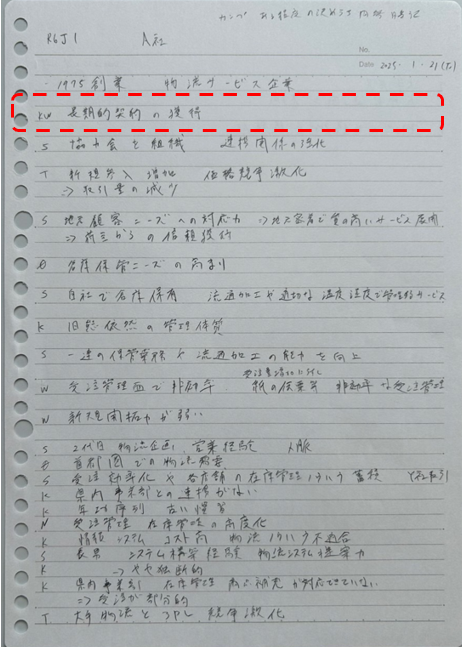 R6J1 A社
No.
Date 2025・1・21(火)
・1975創業 物流サービス企業
KW 長期的契約の獲得
S 協力会を組織 連携関係の強化
T 新規参入増加 価格競争激化
⇒取引量の減少
S 地元顧客ニーズへの対応力 ⇒地元密着で質の高いサービス展開
⇒荷主からの信頼獲得
O 倉庫保管ニーズの高まり
S 自社で倉庫保有 流通加工や適切な温度湿度で管理的サービス
K 旧態依然の管理体質
S 一連の保管業務や流通加工の能力を向上
W 受注管理面で非効率 紙の作業等 非効率な受注管理
W 新規開拓力が弱い
S 2代目 物流企画 営業経験 人脈
首都圏での物流需要
S 受注効率化や各店舗の在庫管理ノウハウ蓄積
K 県内事業部との連携がない
K 年功序列 古い慣習
N 受注管理 在庫管理の高度化
K 情報システム コスト高 物流ノウハウ不適合
S 長男 システム構築経験 物流システム構築力
K ⇒やや独断的
K 県内事業部 在庫管理 商品補充が対応できていない
⇒受注が部分的
T 大手物流と 競争激化